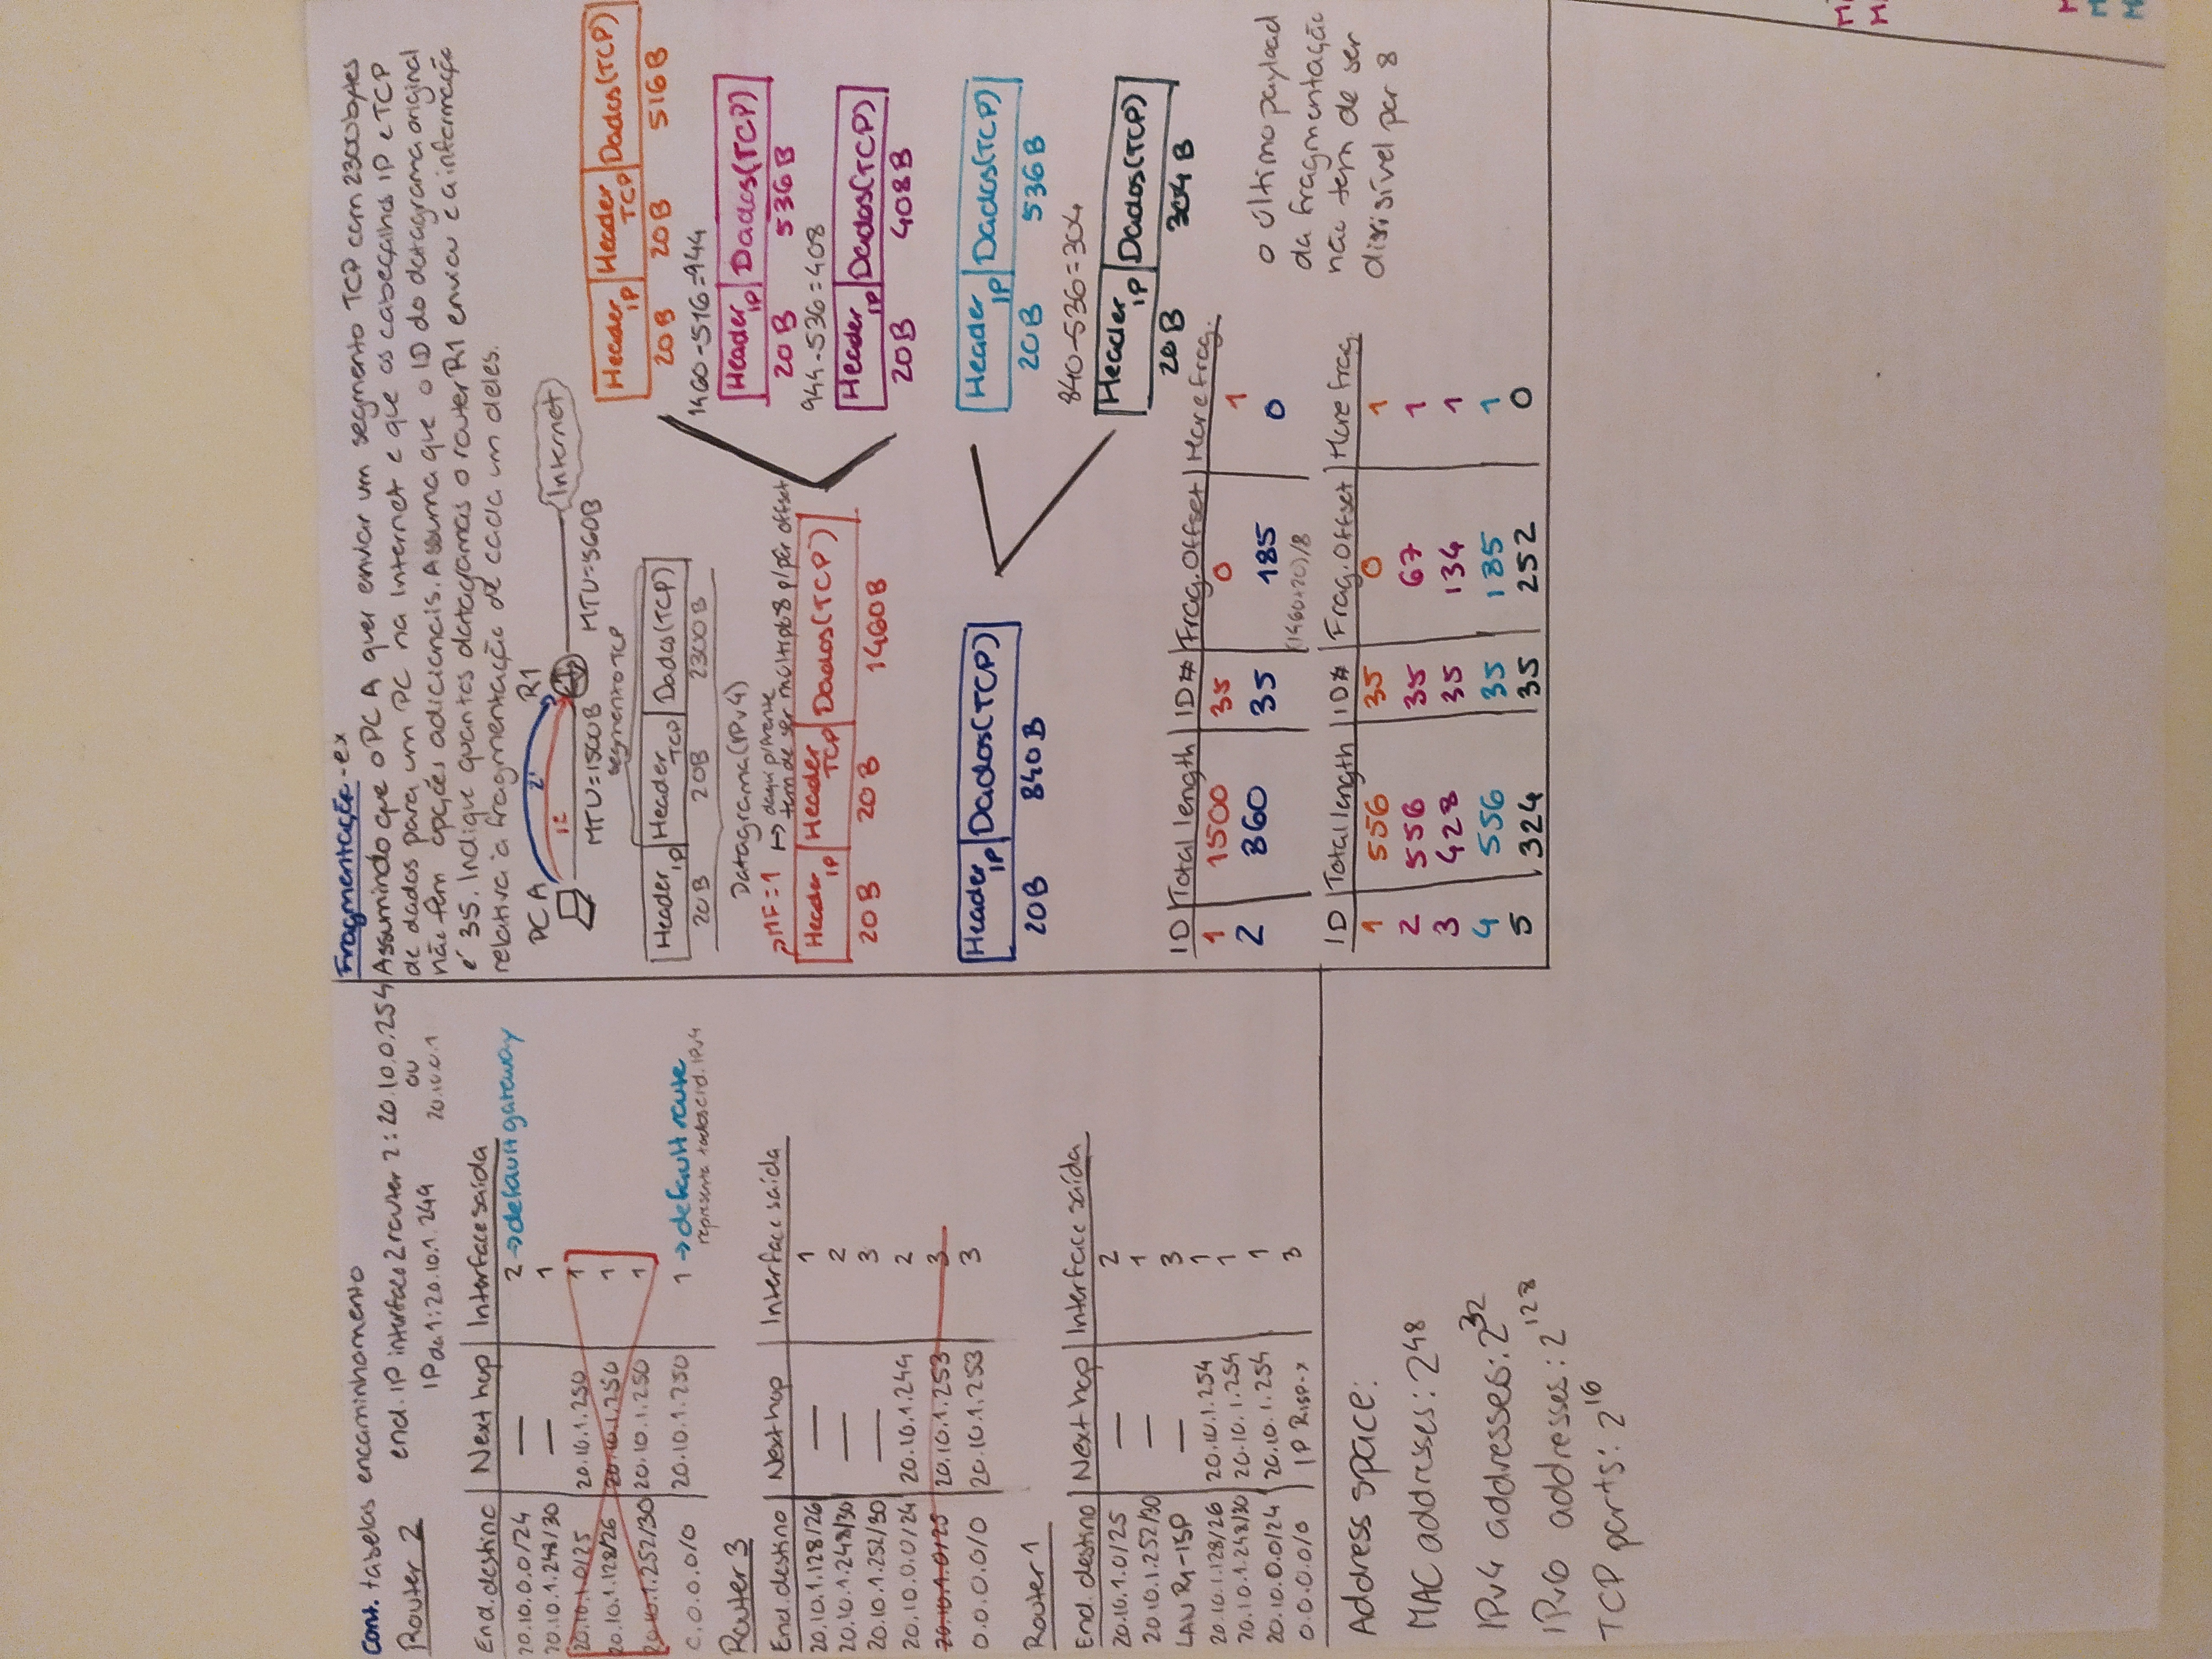 Cont. tabelas encaminhamento
Router 2
end. IP interface 2 router 2: 20.10.0.254
ou
IP da 1: 20.10.1.249 20.10.0.1
End. destino | Next hop | Interface saída
20.10.0.0/24 — 2 → default gateway
20.10.1.248/30 — 1
20.10.1.0/25 20.10.1.250 1
20.10.1.128/26 20.10.1.250 1
20.10.1.252/30 20.10.1.250 1
0.0.0.0/0 20.10.1.250 1 → default route
representa todos end. IPv4
Router 3
End. destino | Next hop | Interface saída
20.10.1.128/26 — 1
20.10.1.248/30 — 2
20.10.1.252/30 — 3
20.10.0.0/24 20.10.1.249 2
20.10.1.0/25 20.10.1.253 3
0.0.0.0/0 20.10.1.253 3
Router 1
End. destino | Next hop | Interface saída
20.10.1.0/25 — 2
20.10.1.252/30 — 1
LAN R1-ISP — 3
20.10.1.128/26 20.10.1.254 1
20.10.1.248/30 20.10.1.254 1
20.10.0.0/24 20.10.1.254 1
0.0.0.0/0 3
Address space:
MAC addresses: 2^48
IPv4 addresses: 2^32
IPv6 addresses: 2^128
TCP ports: 2^16
Fragmentação-ex
Assumindo que o PC A quer enviar um segmento TCP com 2300 bytes
de dados para um PC na Internet e que os cabeçalhos IP e TCP
não têm opções adicionais. Assuma que o ID do datagrama original
é 35. Indique quantos datagramas o router R1 enviou e a informação
relativa à fragmentação de cada um deles.
PC A R1 Internet
1º 2º
MTU=1500B MTU=560B
segmento TCP
Header IP | Header TCP | Dados(TCP)
20B 20B 2300B
Datagrama (IPv4)
MF=1 → daqui p/ frente
tem de ser múltiplo 8 p/ per offset
Header IP | Header TCP | Dados(TCP)
20B 20B 1460B
Header IP | Dados(TCP)
20B 840B
Header IP | Header TCP | Dados(TCP)
20B 20B 516B
1460-516=944
Header IP | Dados(TCP)
20B 536B
944-536=408
Header IP | Dados(TCP)
20B 408B
Header IP | Dados(TCP)
20B 536B
840-536=304
Header IP | Dados(TCP)
20B 304B
ID | Total length | ID# | Frag. Offset | More frag.
1 1500 35 0 1
2 860 35 185 0
(1460+20)/8
ID | Total length | ID# | Frag. Offset | More frag.
1 556 35 0 1
2 556 35 67 1
3 428 35 134 1
4 556 35 185 1
5 324 35 252 0
o último payload
da fragmentação
não tem de ser
divisível por 8